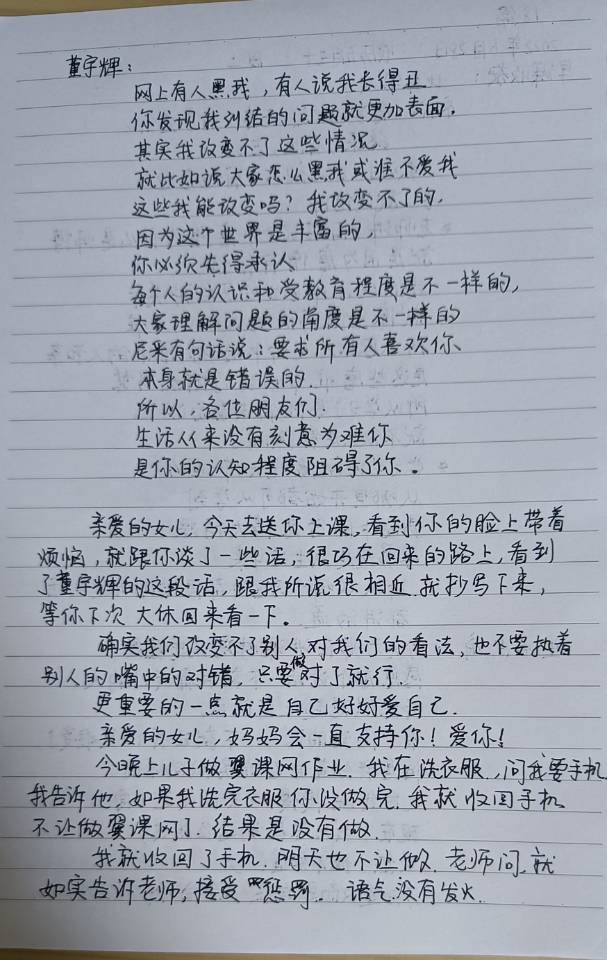 董宇辉：
网上有人黑我，有人说我长得丑
你发现我纠结的问题就更加表面。
其实我改变不了这些情况
就比如说大家怎么黑我或谁不爱我
这些我能改变吗？我改变不了的。
因为这个世界是丰富的，
你必须先得承认
每个人的认识和受教育程度是不一样的，
大家理解问题的角度是不一样的
尼采有句话说：要求所有人喜欢你、
本身就是错误的.
所以，各位朋友们.
生活从来没有刻意为难你
是你的认知程度阻碍了你。
亲爱的女儿，今天去送你上课，看到你的脸上带着
烦恼，就跟你谈了一些话，很巧在回来的路上，看到
了董宇辉的这段话，跟我所说很相近.就抄写下来，
等你下次大休回来看一下。
确实我们改变不了别人对我们的看法，也不要执着
别人的嘴中的对错，只要做对了就行.
更重要的一点就是自己好好爱自己.
亲爱的女儿，妈妈会一直支持你！爱你！
今晚上儿子做翼课网作业.我在洗衣服，问我要手机
我告诉他，如果我洗完衣服你没做完.我就收回手机
不让做翼课网了.结果是没有做.
我就收回了手机.明天也不让做.老师问，就
如实告诉老师，接受惩罚.语气没有发火.